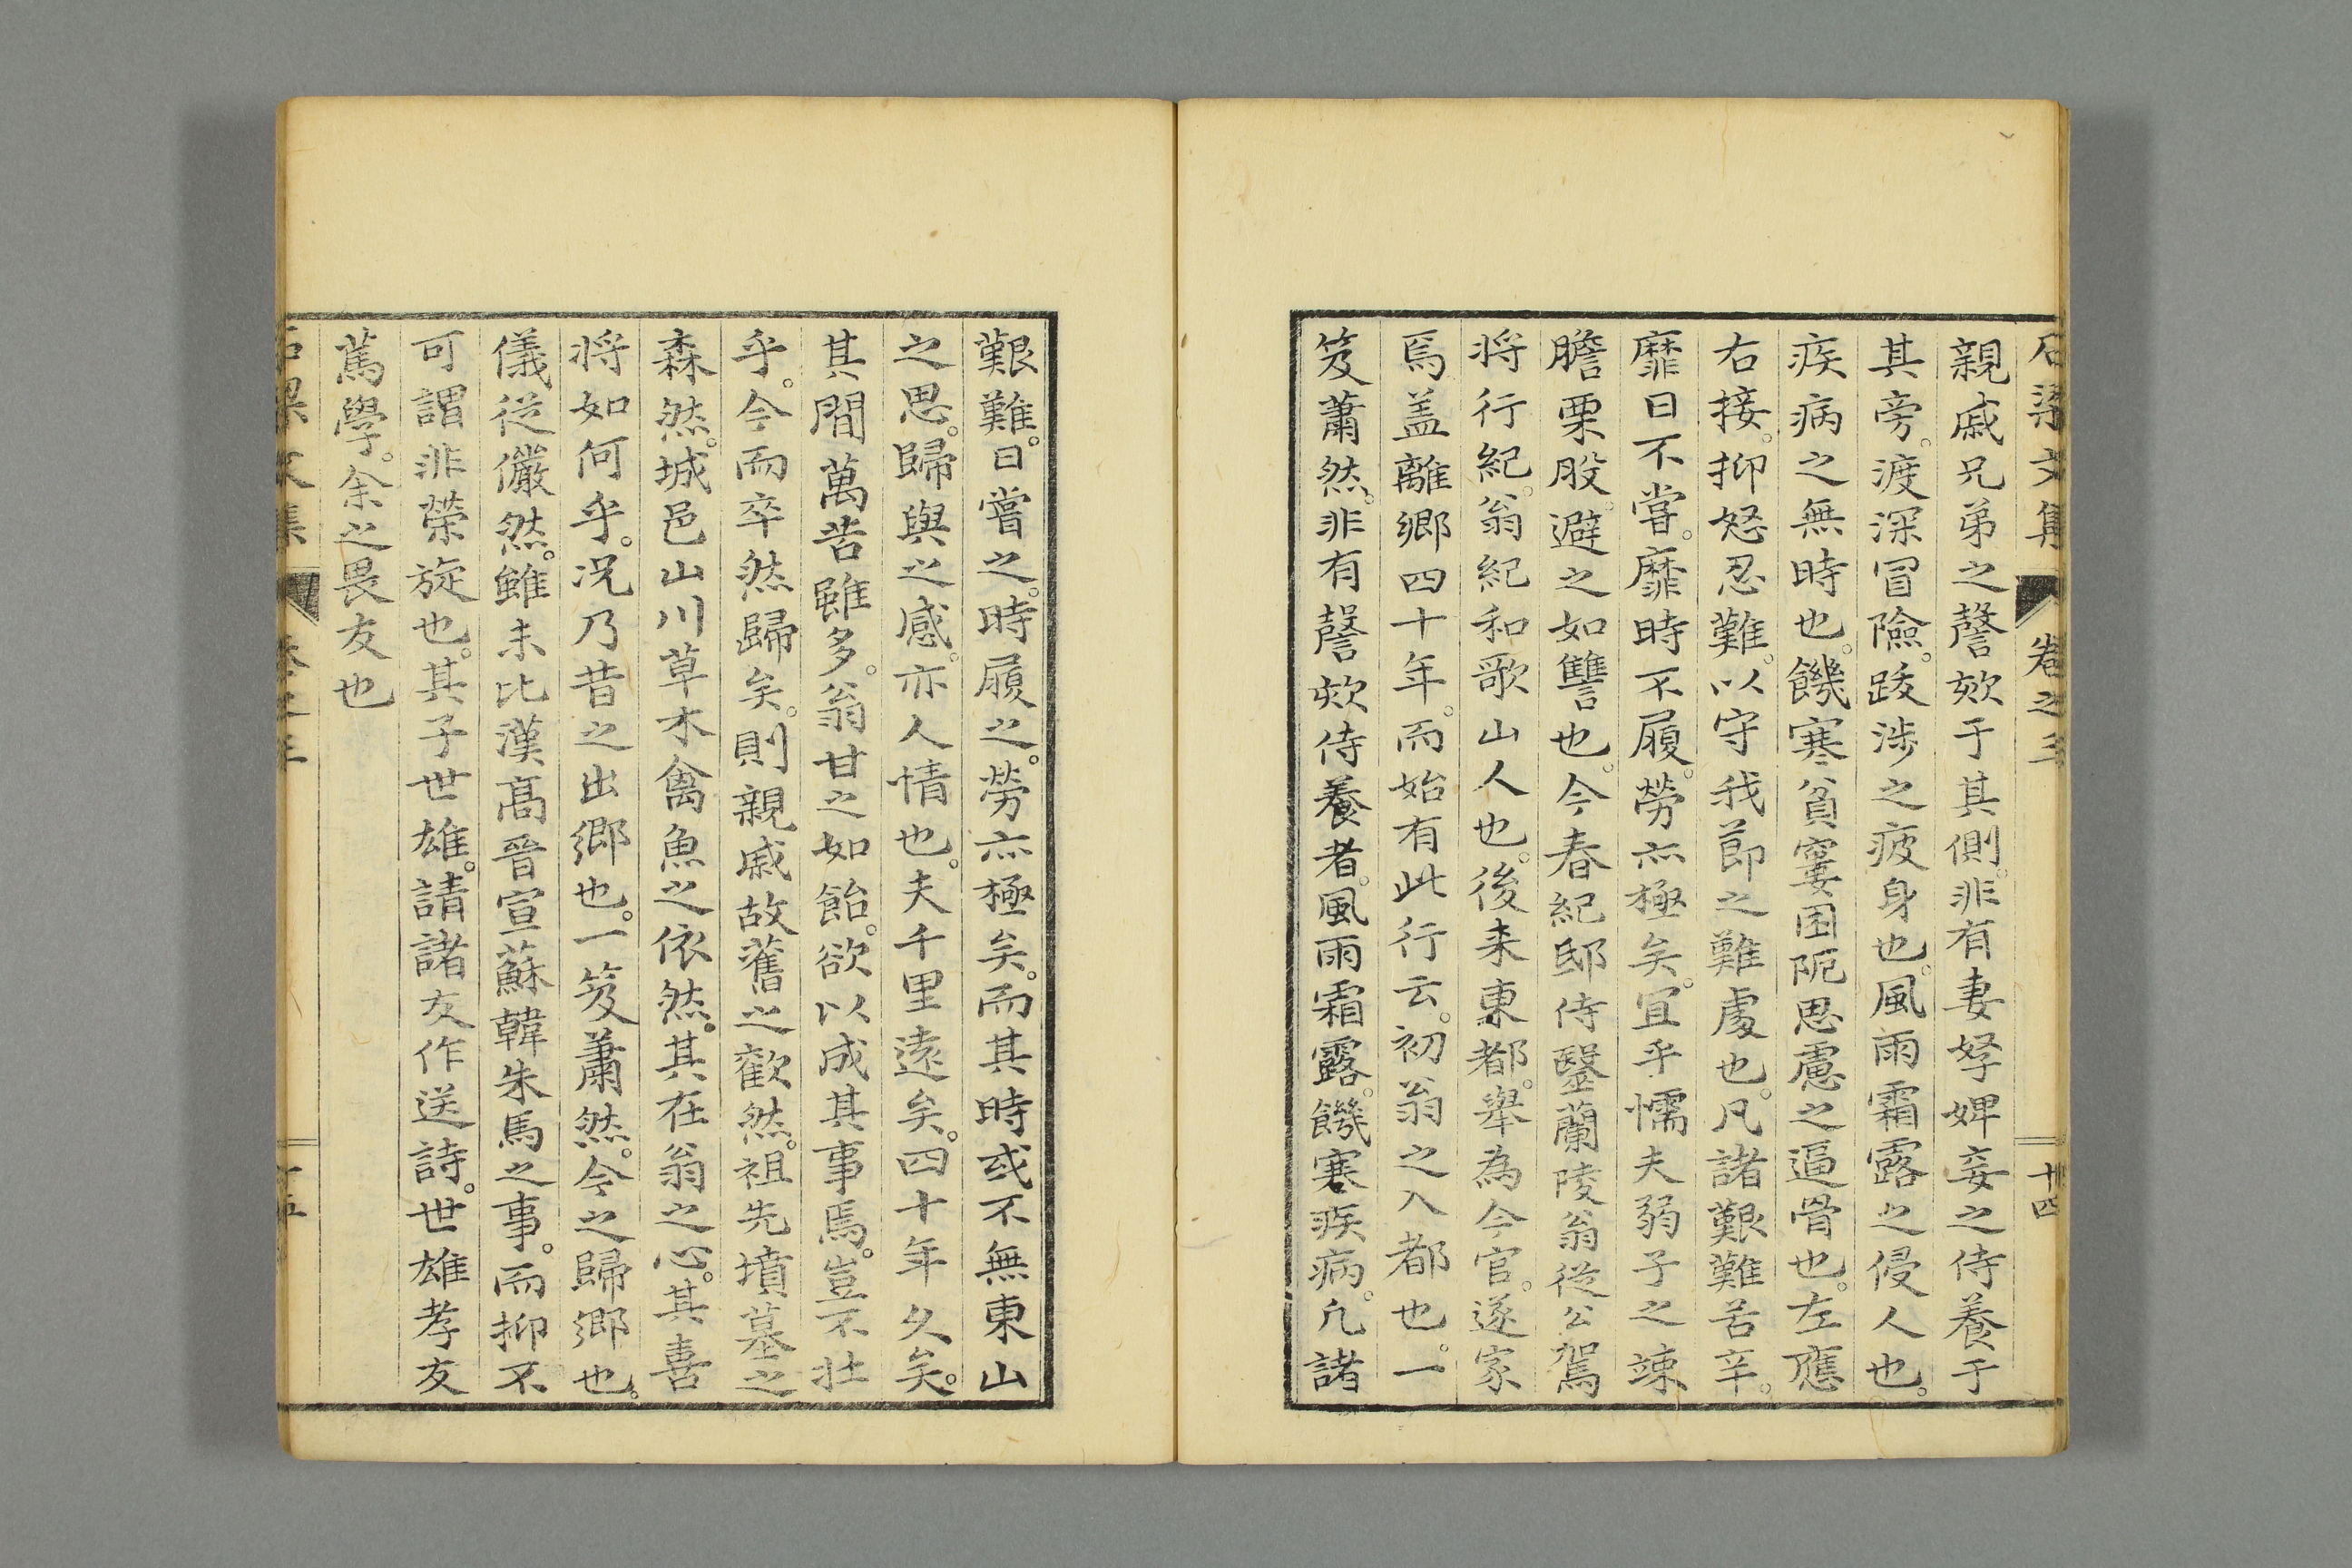 石梁文集 卷之三 十四
親戚兄弟之謦欬于其側。非有妻孥婢妾之侍養于
其旁。渡深冒險。跋涉之疲身也。風雨霜露之侵人也。
疾病之無時也。饑寒貧窶困阨思慮之逼骨也。左應
右接。抑怒忍難。以守我節之難處也。凡諸艱難苦辛。
靡日不嘗。靡時不履。勞亦極矣。宜乎懦夫弱子之竦
膽栗股。避之如讐也。今春紀邸侍醫蘭陵翁從公駕
将行紀。翁紀和歌山人也。後来東都。舉為今官。遂家
焉盖離鄉四十年。而始有此行云。初翁之入都也。一
笈蕭然。非有謦欬侍養者。風雨霜露。饑寒疾病。凡諸
艱難。日嘗之。時履之。勞亦極矣。而其時或不無東山
之思。歸與之感。亦人情也。夫千里遠矣。四十年久矣。
其間萬苦雖多。翁甘之如飴。欲以成其事焉。豈不壯
乎。今而卒然歸矣。則親戚故舊之歡然。祖先墳墓之
森然。城邑山川草木禽魚之依然。其在翁之心。其喜
将如何乎。况乃昔之出鄉也。一笈蕭然。今之歸鄉也。
儀從儼然。雖未比漢髙晉宣蘇韓朱馬之事。而抑不
可謂非榮旋也。其子世雄。請諸友作送詩。世雄孝友
篤學。余之畏友也
石梁文集 卷之三 十五